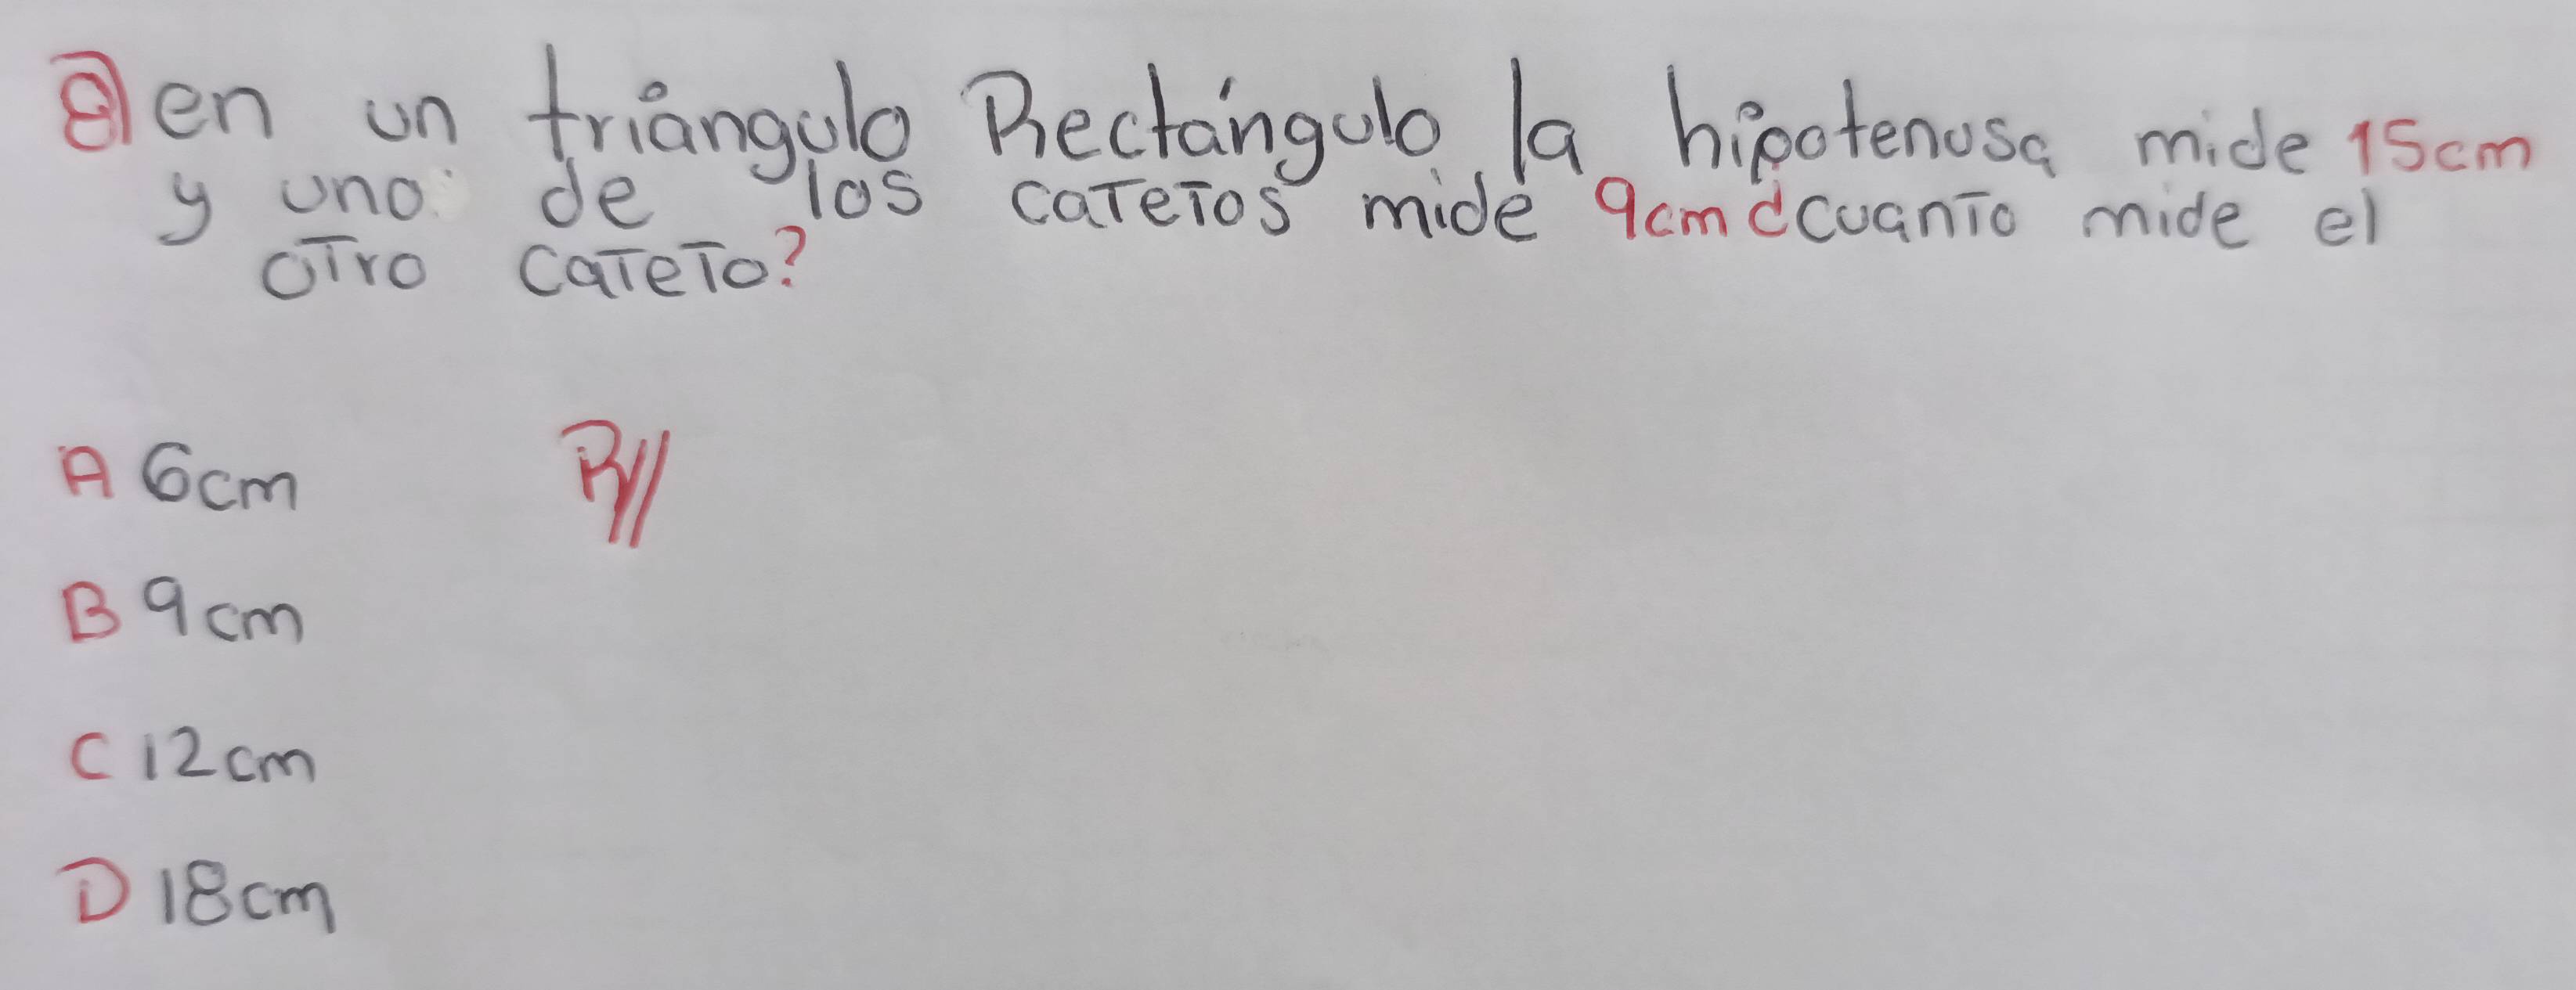 8) en un triángulo Rectángulo la hipotenusa mide 15cm
y uno de los catetos mide 9cm ¿cuanto mide el
otro cateto?
A 6cm R//
B 9cm
C 12cm
D 18cm